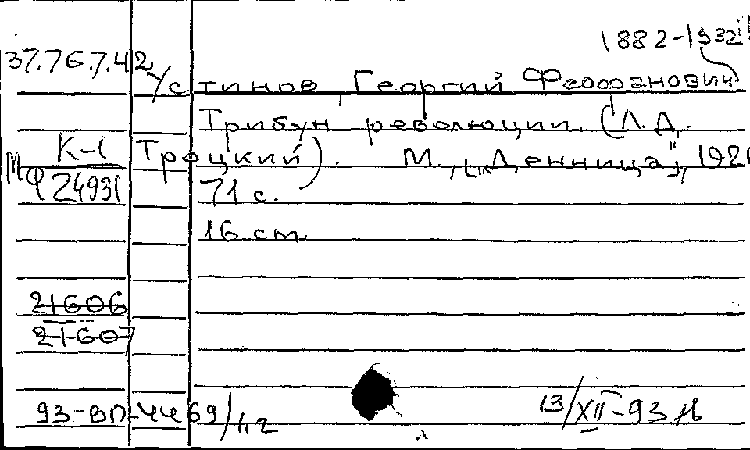 1882-1932
37.76.7.42
Устинов, Георгий Феофанович
Трибун революции. (Л.Д.
К-1
Троцкий). М., "Денница",
МФ 24931
71 с.
16 cm
21606
21607
93-ВП-4469/
13/XII-93